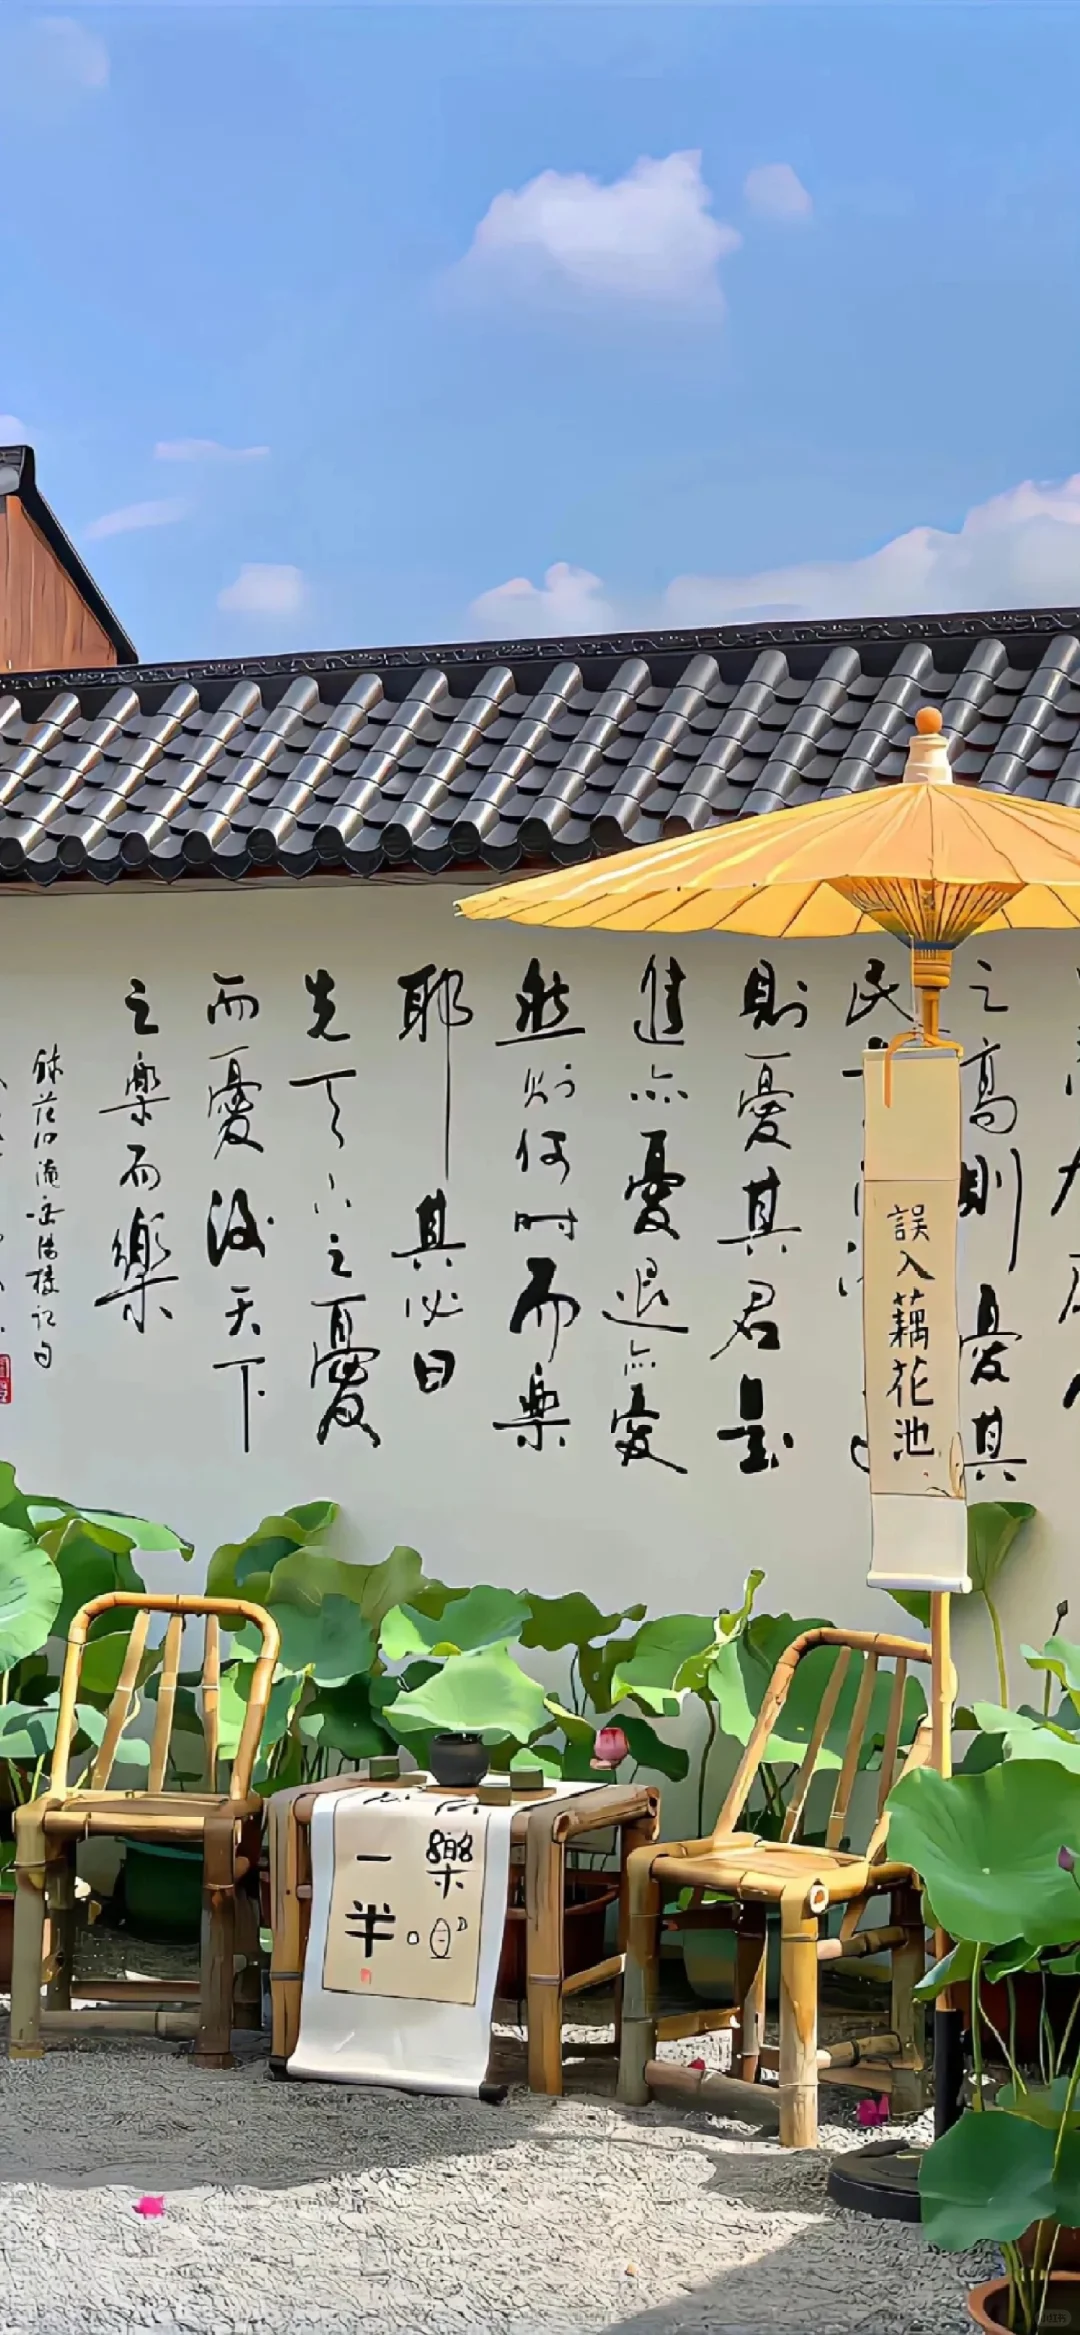 之高則憂其
民
則憂其君是
進亦憂退亦憂
然則何時而樂
耶其必曰
先天下之憂
而憂後天下
之樂而樂
范仲淹岳陽樓記句
誤入藕花池
樂
一半